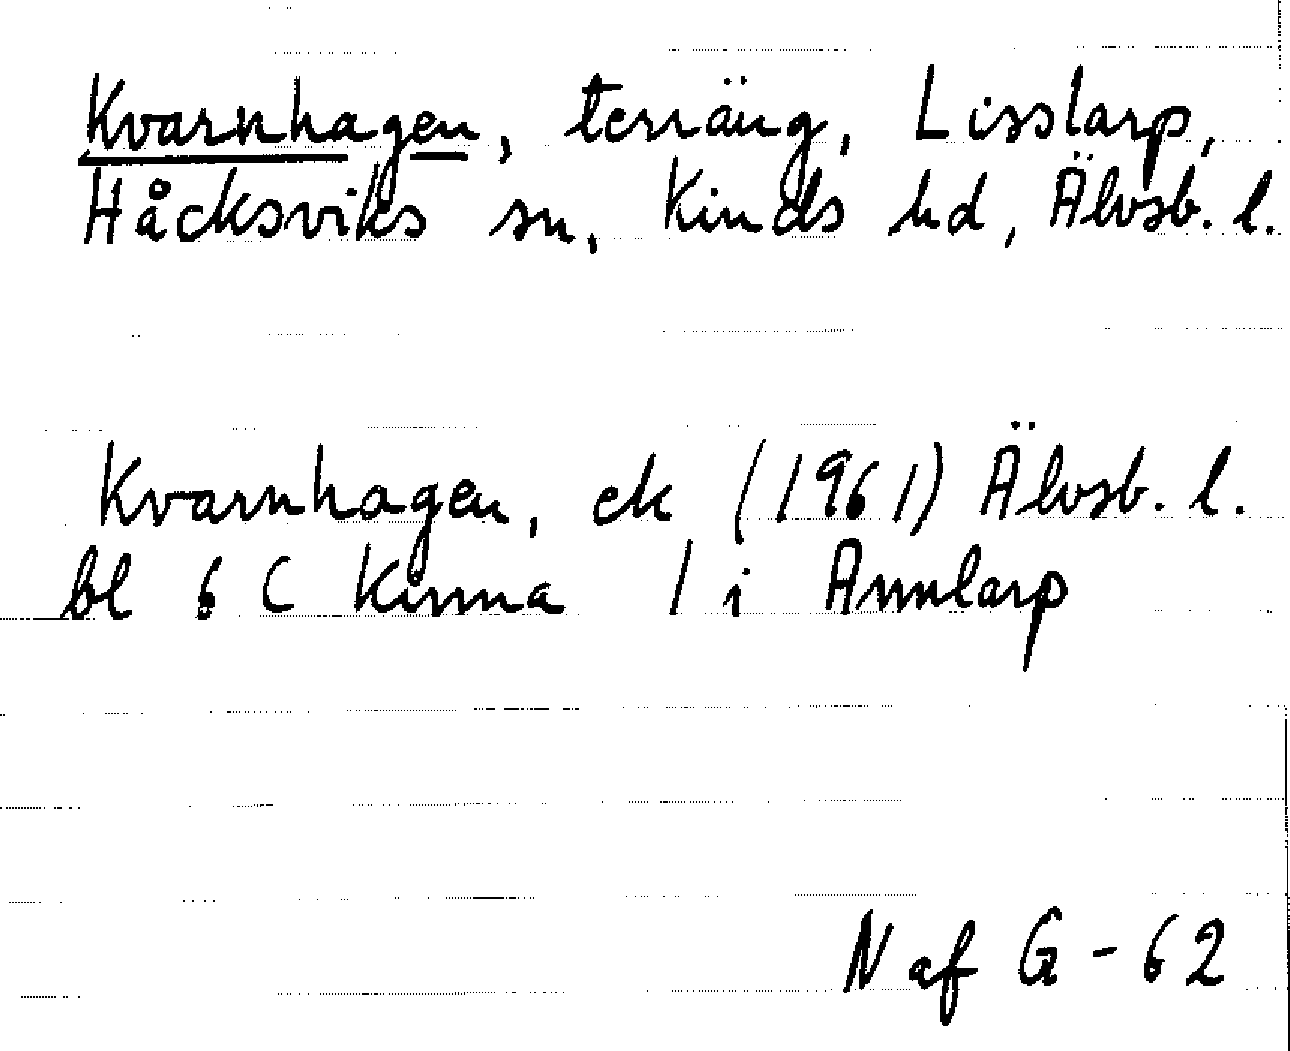 Kvarnhagen, terräng, Lisslarp,
Håcksviks sn, Kinds hd, Älvsb. l.
Kvarnhagen, ek (1961) Älvsb. l.
bl 6 C Kinna 1 i Annlarp
N af G - 62